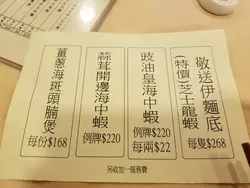 敬送伊麵底
(特價)芝士龍蝦
每隻$268
豉油皇海中蝦
例牌$220
每兩$22
蒜茸開邊海中蝦
例牌$220
薑葱海斑頭腩煲
每份$168
另收加一服務費